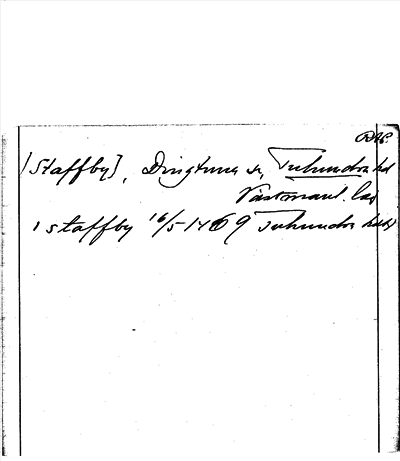 [Staffby], Dingtuna sn, Tuhundra hd
Västmanl. län
i staffby 16/5 1469 Tuhundra hdb